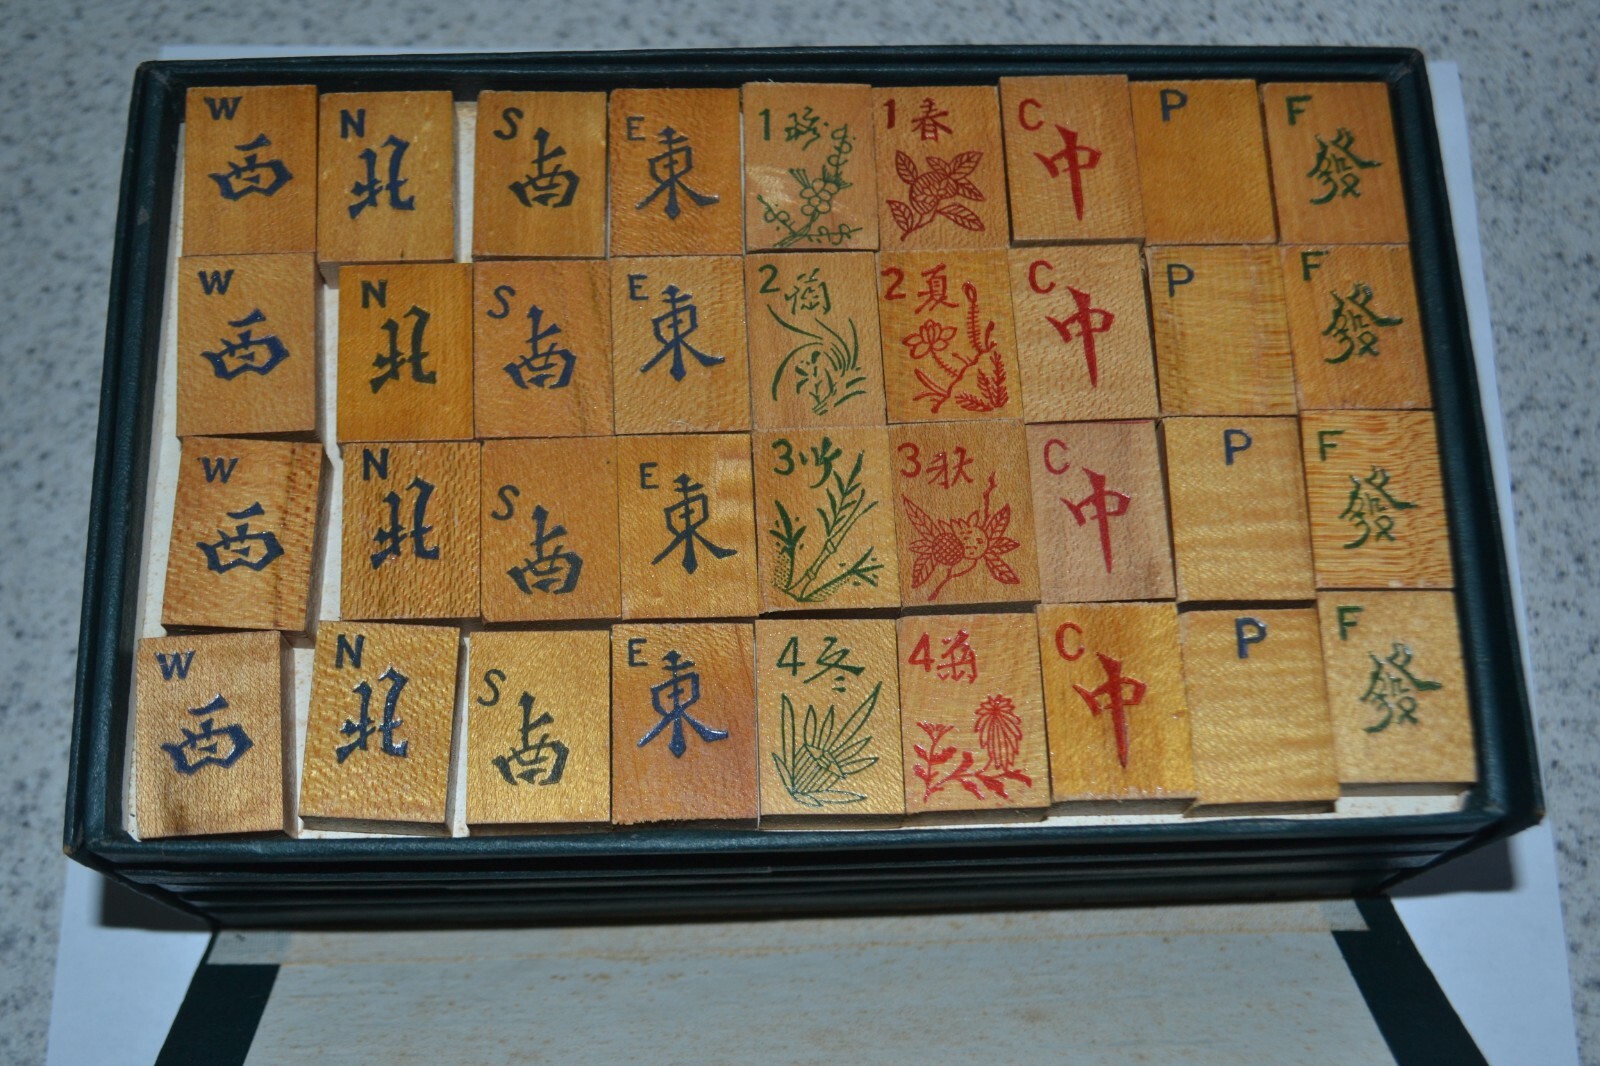 W 西 N 北 S E 東 1 1 春 C 中 P F 發
W 西 N 北 S E 東 2 2 夏 C 中 P F 發
W 西 N 北 S E 東 3 3 秋 C 中 P F 發
W 西 N 北 S E 東 4 冬 4 菊 C 中 P F 發